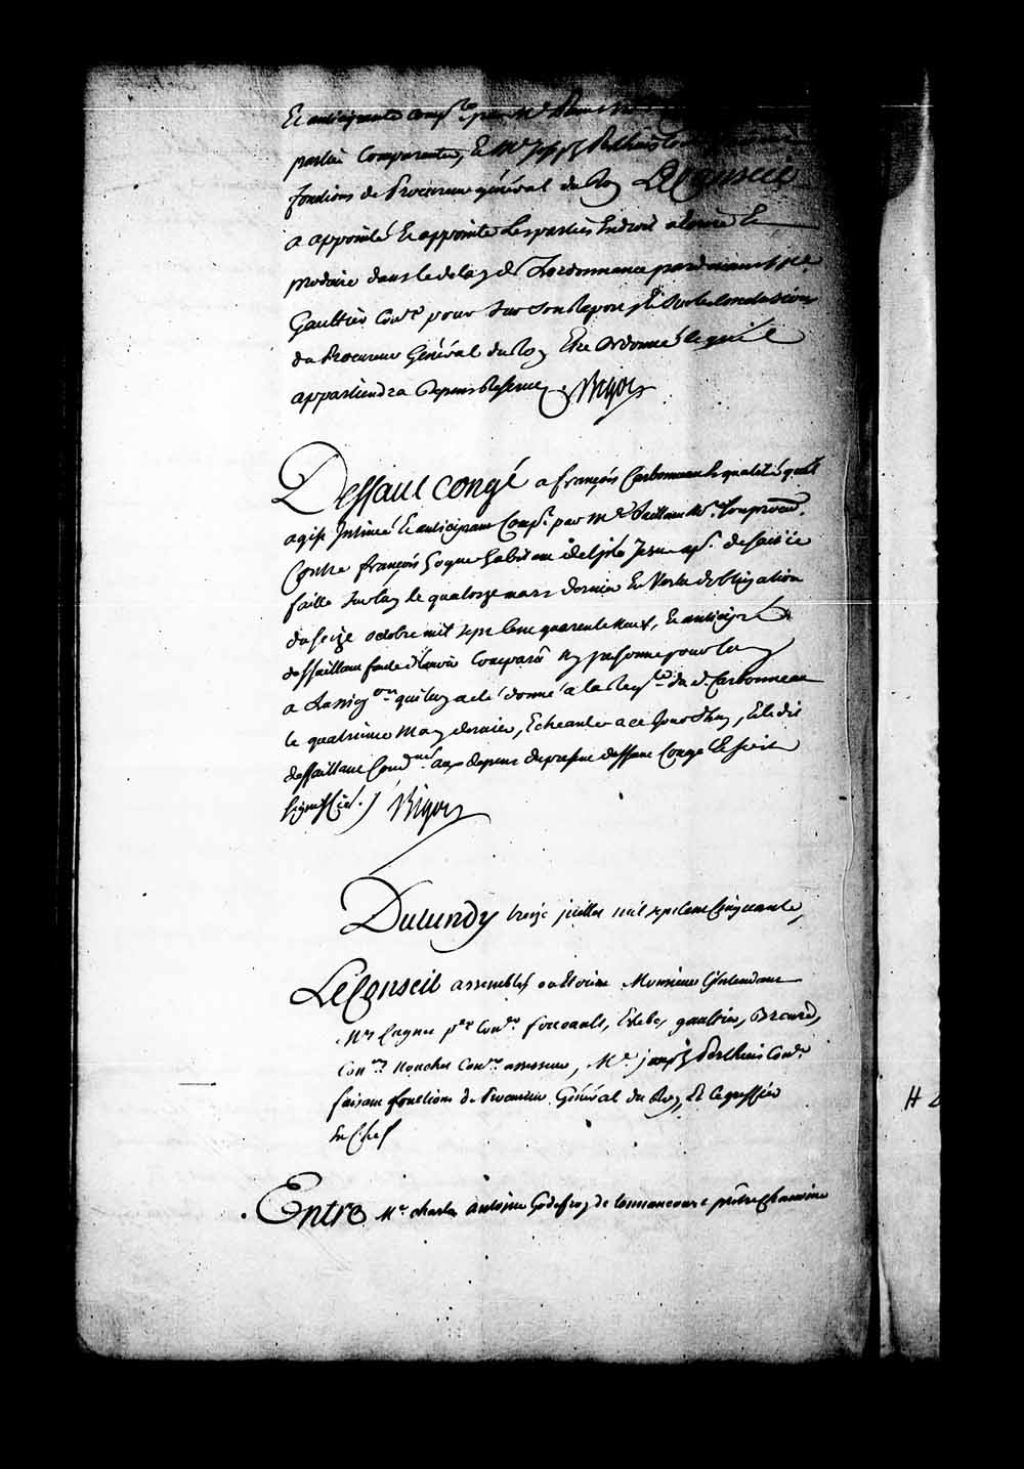 Et anticipante comp.te par Me
parties Comparantes, Et Me Joseph Perthuis
fonctions de Procureur général du Roy Le Conseil
a appointé Et appointe Les parties En droit a Ecrire Et
produire dans le delay de L'ordonnance pardevant Me
Gaultier Coner pour Sur Son Raport Et Sur les Conclusions
du Procureur Général du Roy Etre Ordonné ce qu'il
appartiendra Depens Reservez Bigot
Deffaut congé a françois Carbonneau Es qualité qu'il
agist Intimé Et anticipant Comp.t par Me Saillant Nore Son procur.
Contre françois habitant app.t de saisie
faitte Sur luy le quatorze mars dernier En Vertu d'obligation
du seize octobre mil sept Cent quarente neuf, Et anticipé
deffaillant faute d'avoir Comparu Ny personne pour luy
a L'assig.on qui luy a eté donné a la Req.te du d. Carbonneau
le quatrieme May dernier, Echeante a ce Jourd'huy, Et le dit
deffaillant Cond.né aux depens du present deffaut Congé Et soit
Signiffié ./ Bigot
Du Lundy treize juillet mil sept Cent Cinquante,
Le Conseil assemblé ou Etoient Monsieur L'Intendant
Mrs Cugnet p.er Coner foucault, Estebe, gaultier, Breard,
Coners Nouchet Coner assesseur, Me joseph Perthuis Coner
faisant fonctions de Procureur Général du Roy, Et le greffier
En Chef
Entre Mre charles Antoine Godefroy de tonnancourt prêtre Chanoine
H